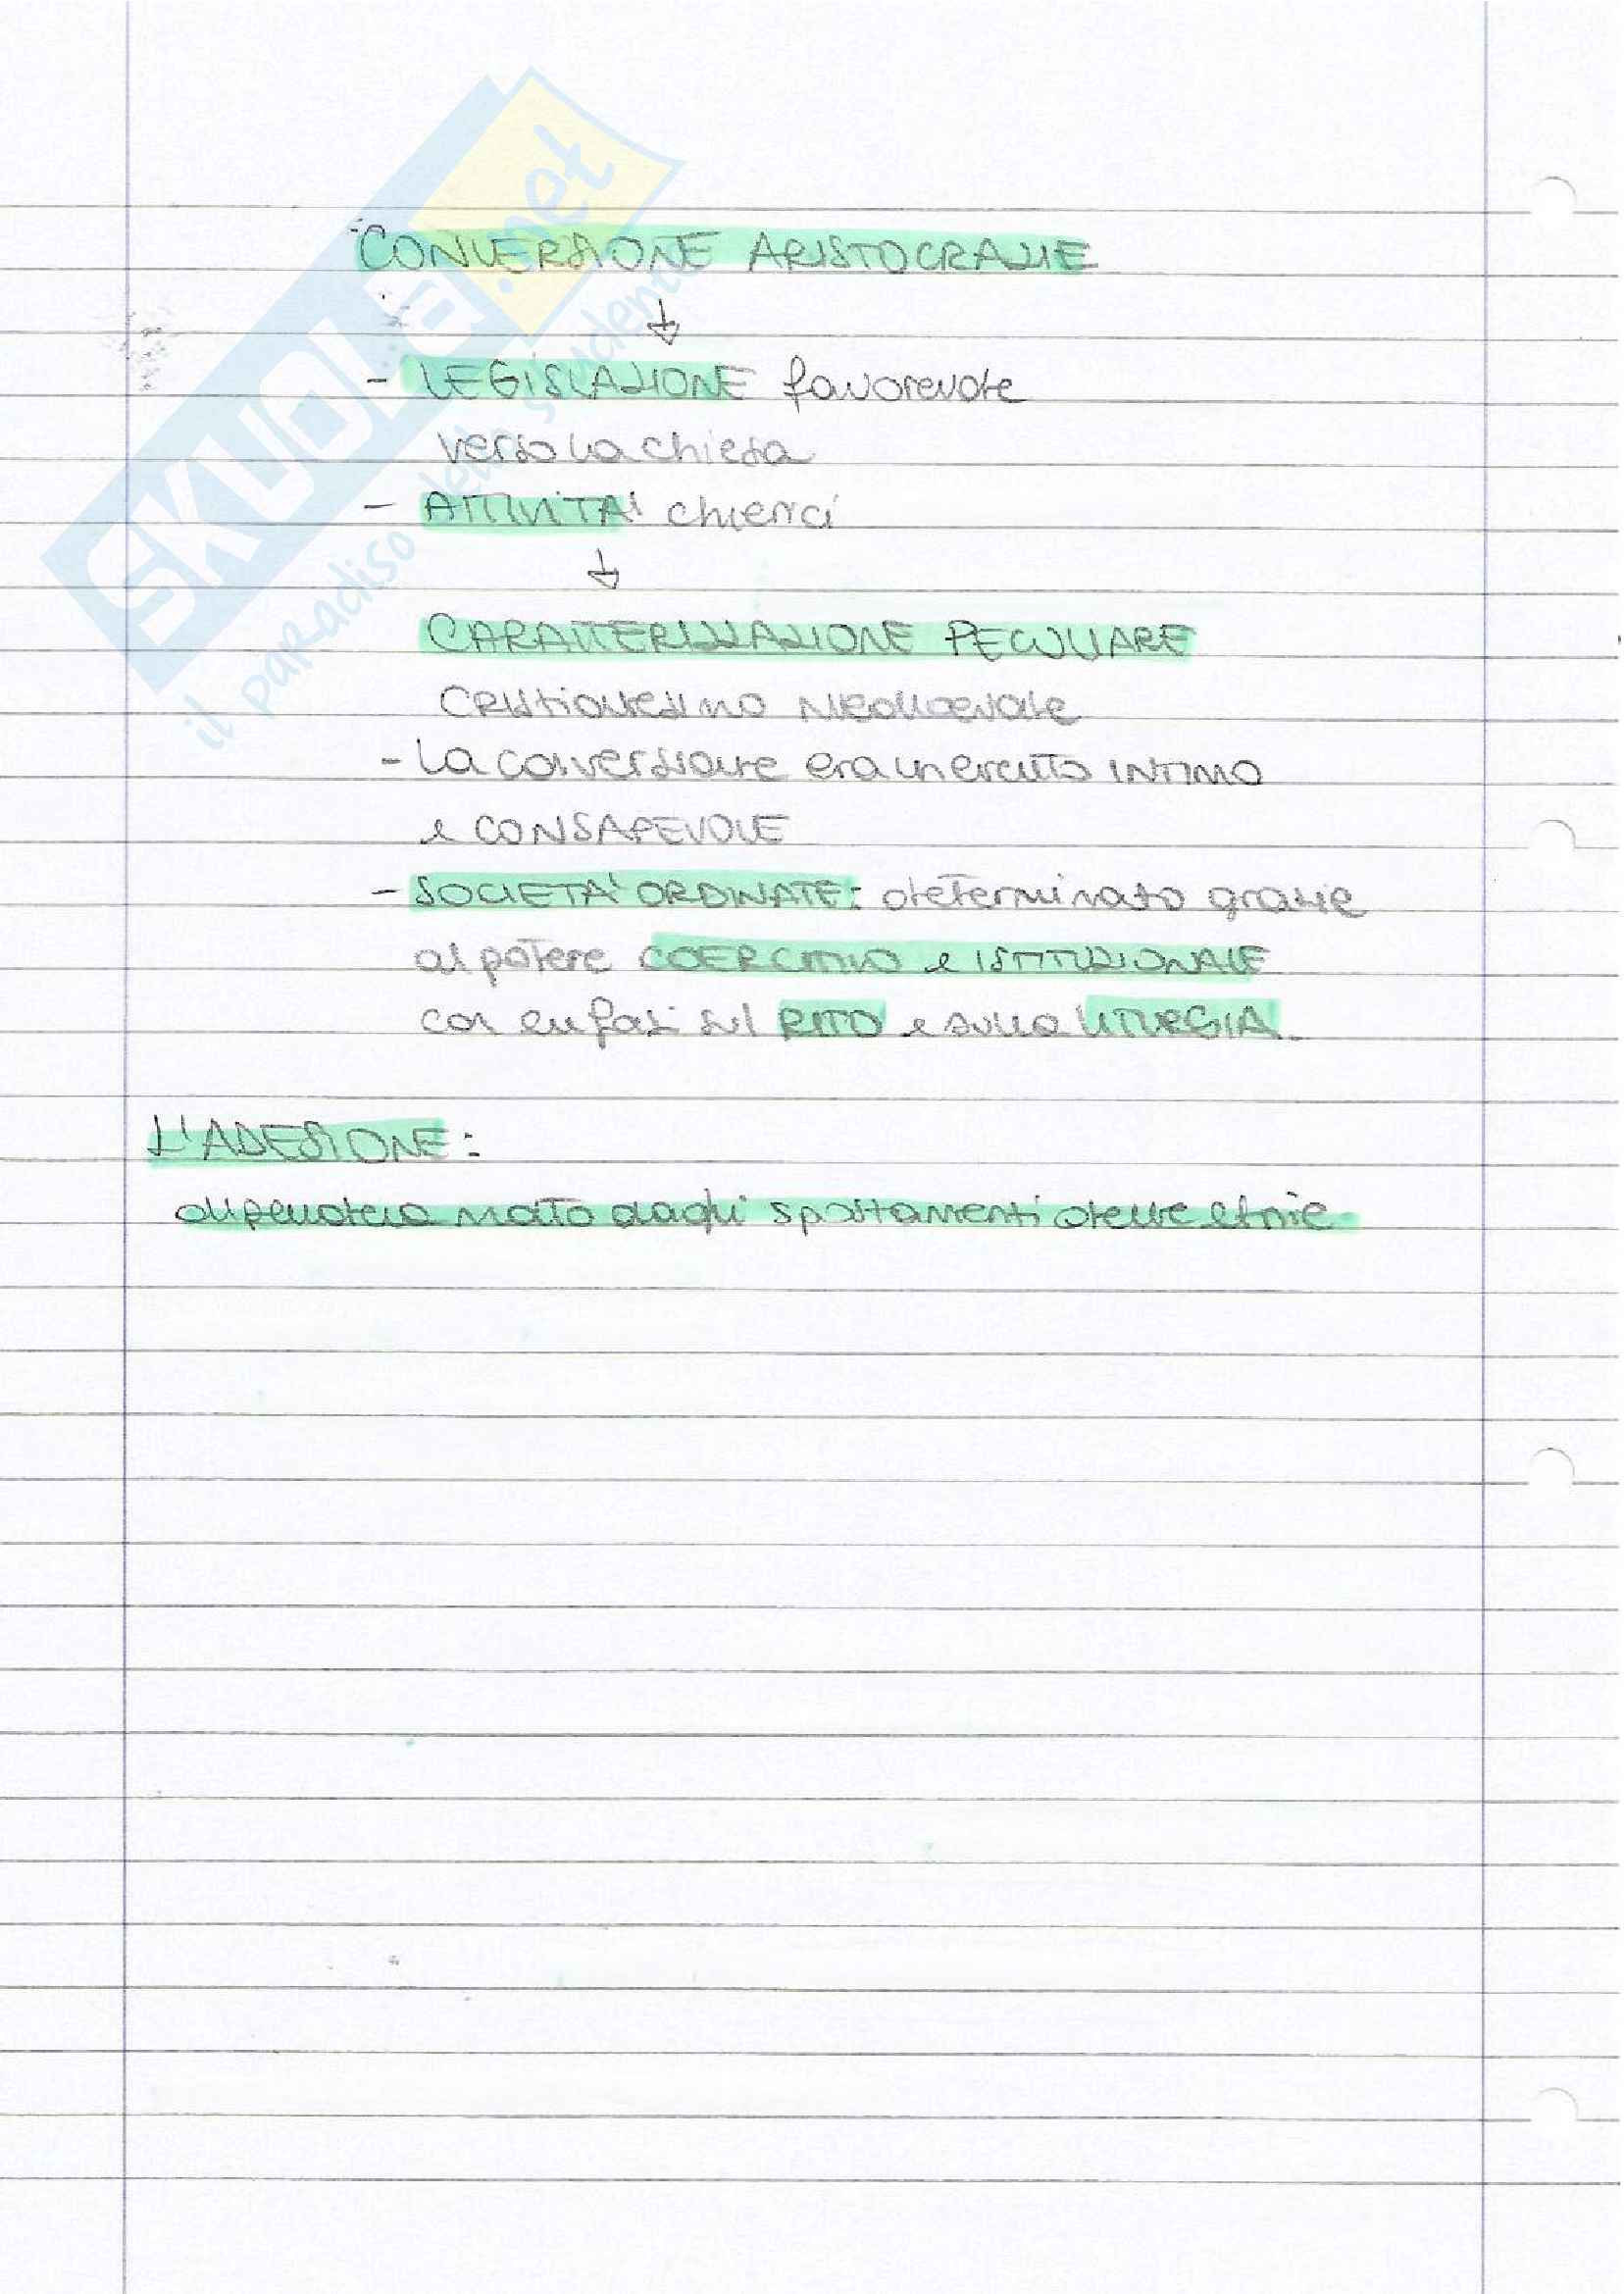 SKUOLA.net
il paradiso dello studente
CONVERSIONE ARISTOCRAZIE
↓
- LEGISLAZIONE favorevole
verso la chiesa
- ATTIVITA' chierici
↓
CARATTERIZZAZIONE PECULIARE
Cristianesimo Medioevale
- La conversione era un evento INTIMO
e CONSAPEVOLE
- SOCIETA' ORDINATE: determinato grazie
al potere COERCITIVO e ISTITUZIONALE
con enfasi sul RITO e sulla LITURGIA.
L'ADESIONE:
dipendeva molto dagli spostamenti delle etnie